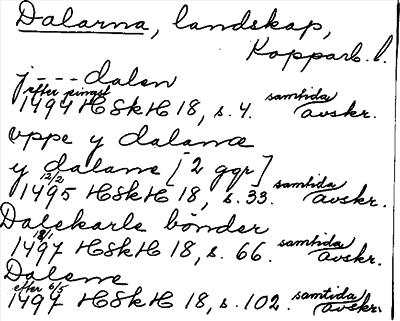 Dalarna, landskap,
Kopparb. l.
j - - - dalen
efter pingst
1494 HSkH 18, s. 4. samtida avskr.
vppe y dalana
y dalane [2 ggr]
12/2
1495 HSkH 18, s. 33. samtida avskr.
Dalekarla bönder
18/1
1497 HSkH 18, s. 66. samtida avskr.
Dalene
efter 6/5
1497 HSkH 18, s. 102. samtida avskr.